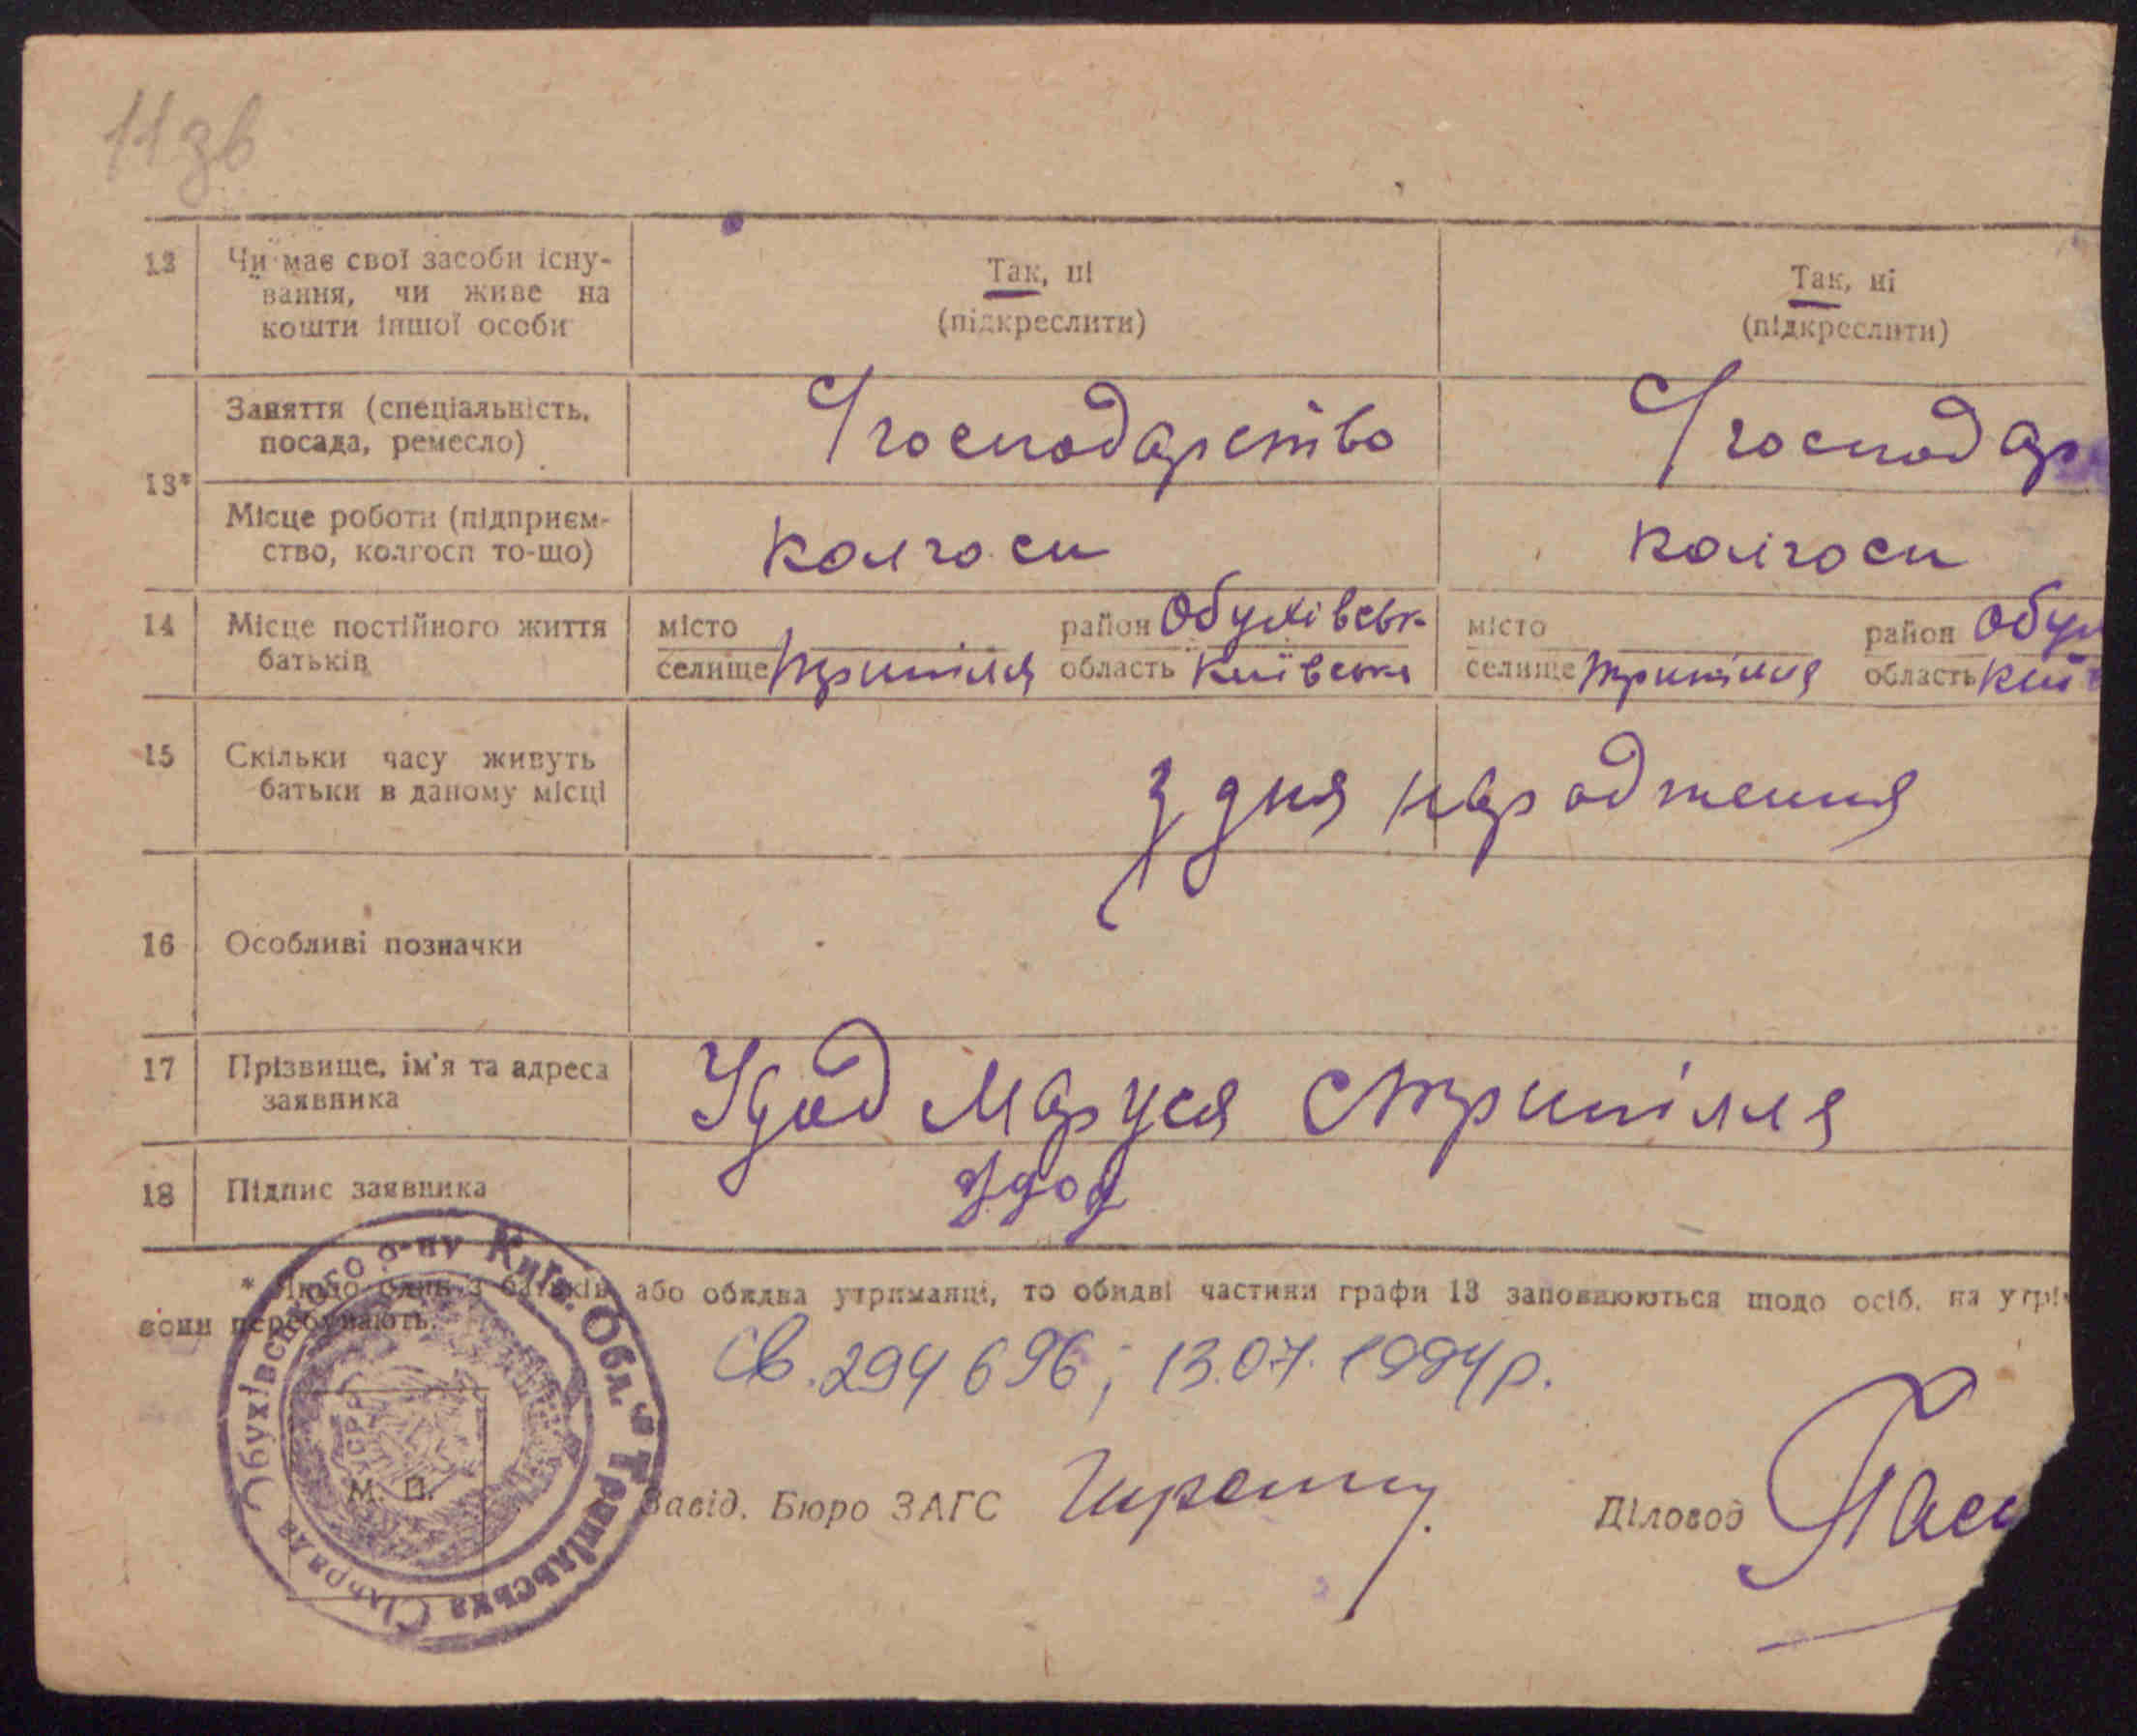 11зв
12 Чи має свої засоби існу-
вання, чи живе на
кошти іншої особи
Так, ні
(підкреслити)
Так, ні
(підкреслити)
13*
Заняття (спеціальність,
посада, ремесло)
С/господарство
С/господар
Місце роботи (підприєм-
ство, колгосп то-що)
колгосп
колгосп
14 Місце постійного життя
батьків
місто
селище Трипілля
район Обухівськ
область Київська
місто
селище Трипілля
район Обух
область Київ
15 Скільки часу живуть
батьки в даному місці
з дня народження
16 Особливі позначки
17 Прізвище, ім'я та адреса
заявника
Удод Маруся с Трипілля
18 Підпис заявника
Удод
* Якщо один з батьків або обидва утриманці, то обидві частини графи 13 заповнюються щодо осіб, на утрі
вони перебувають.
Св. 294 696; 13.07.1994р.
Обухівського р-ну Київ. Обл. Трипільська Сільрада
УСРР
М. П.
Завід. Бюро ЗАГС
Діловод